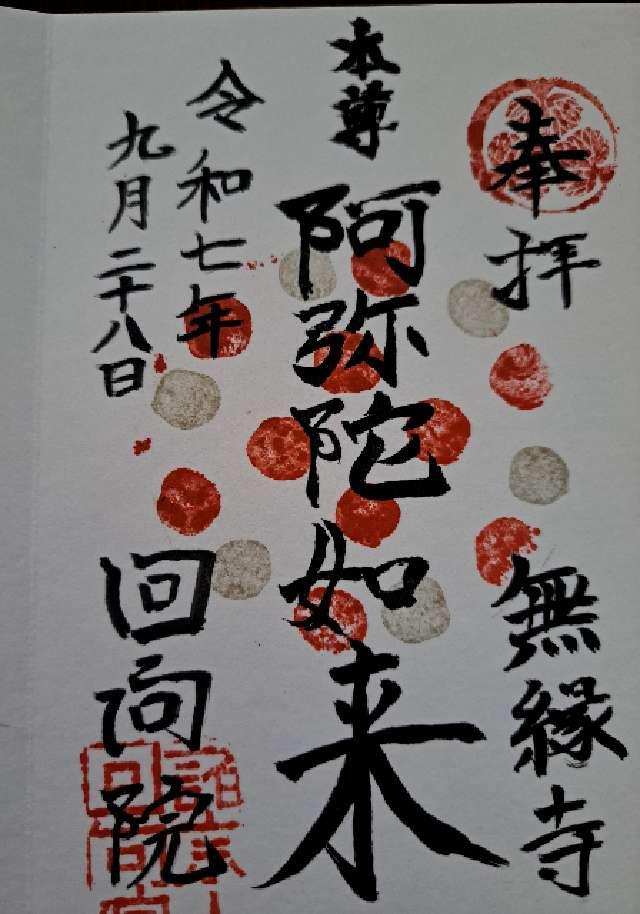 奉拝
無縁寺
本尊
阿弥陀如来
令和七年
九月二十八日
回向院